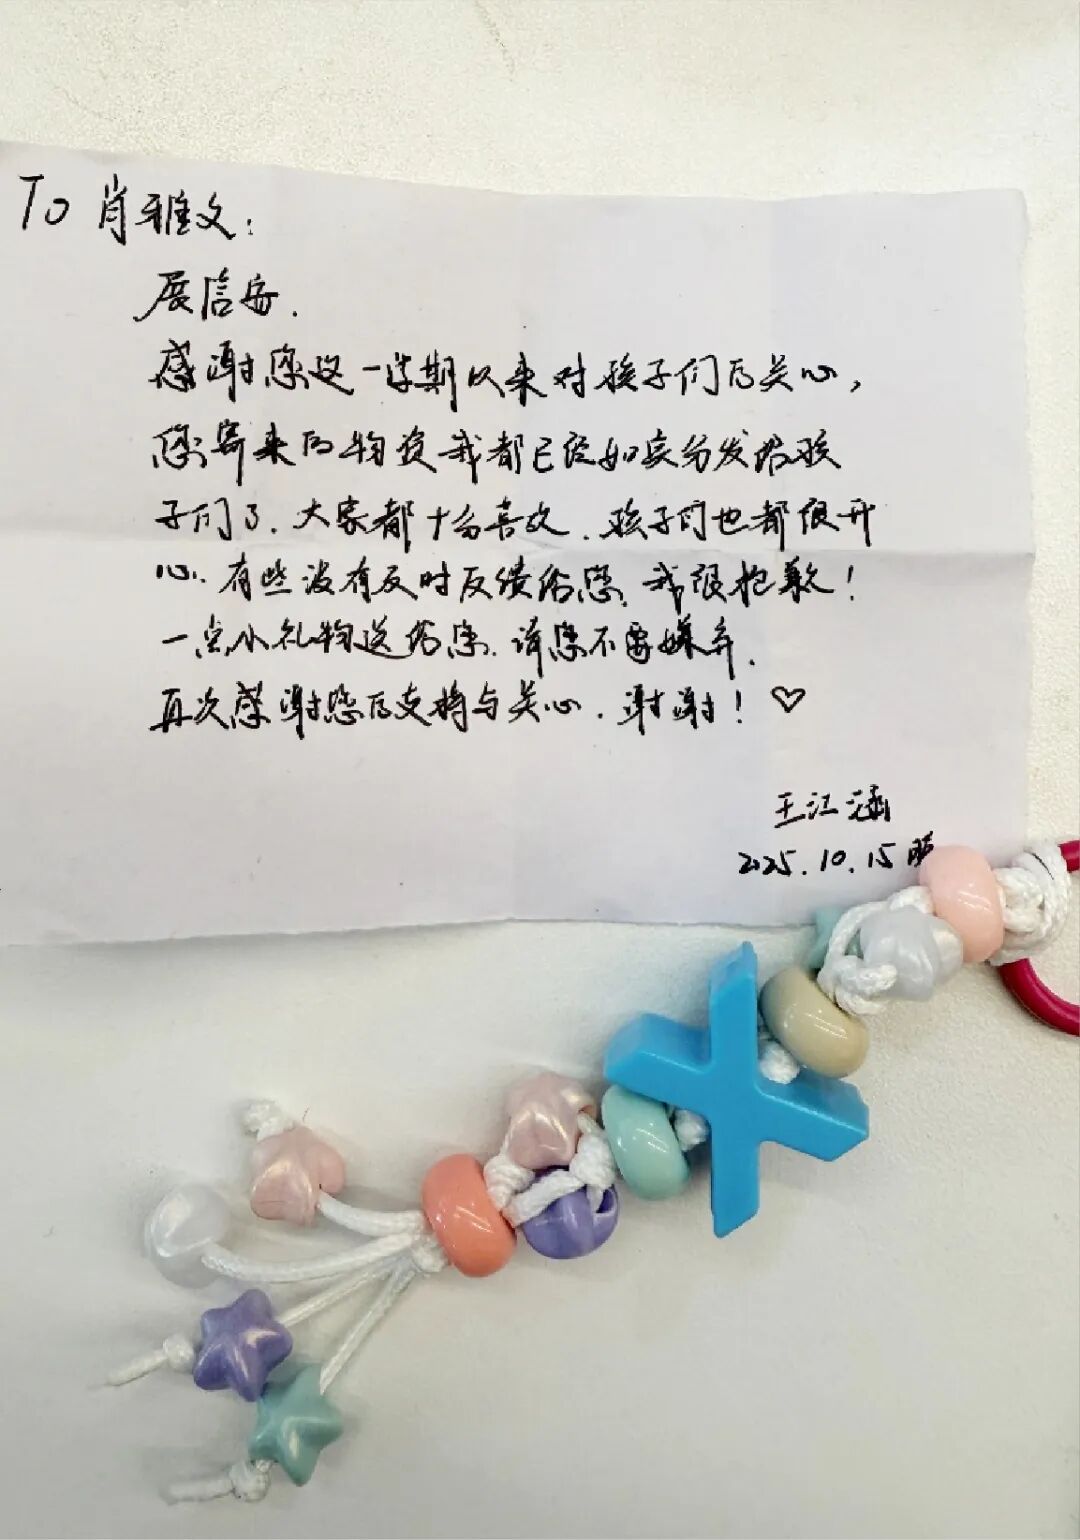 To 肖雅文:
展信安.
感谢您这一学期以来对孩子们的关心,
您寄来的物资我都已经如实分发给孩
子们了.大家都十分喜欢.孩子们也都很开
心.有些没有及时反馈给您,我很抱歉!
一点小礼物送给您.请您不要嫌弃.
再次感谢您的支持与关心.谢谢!♡
王江涵
2025.10.15晚
X